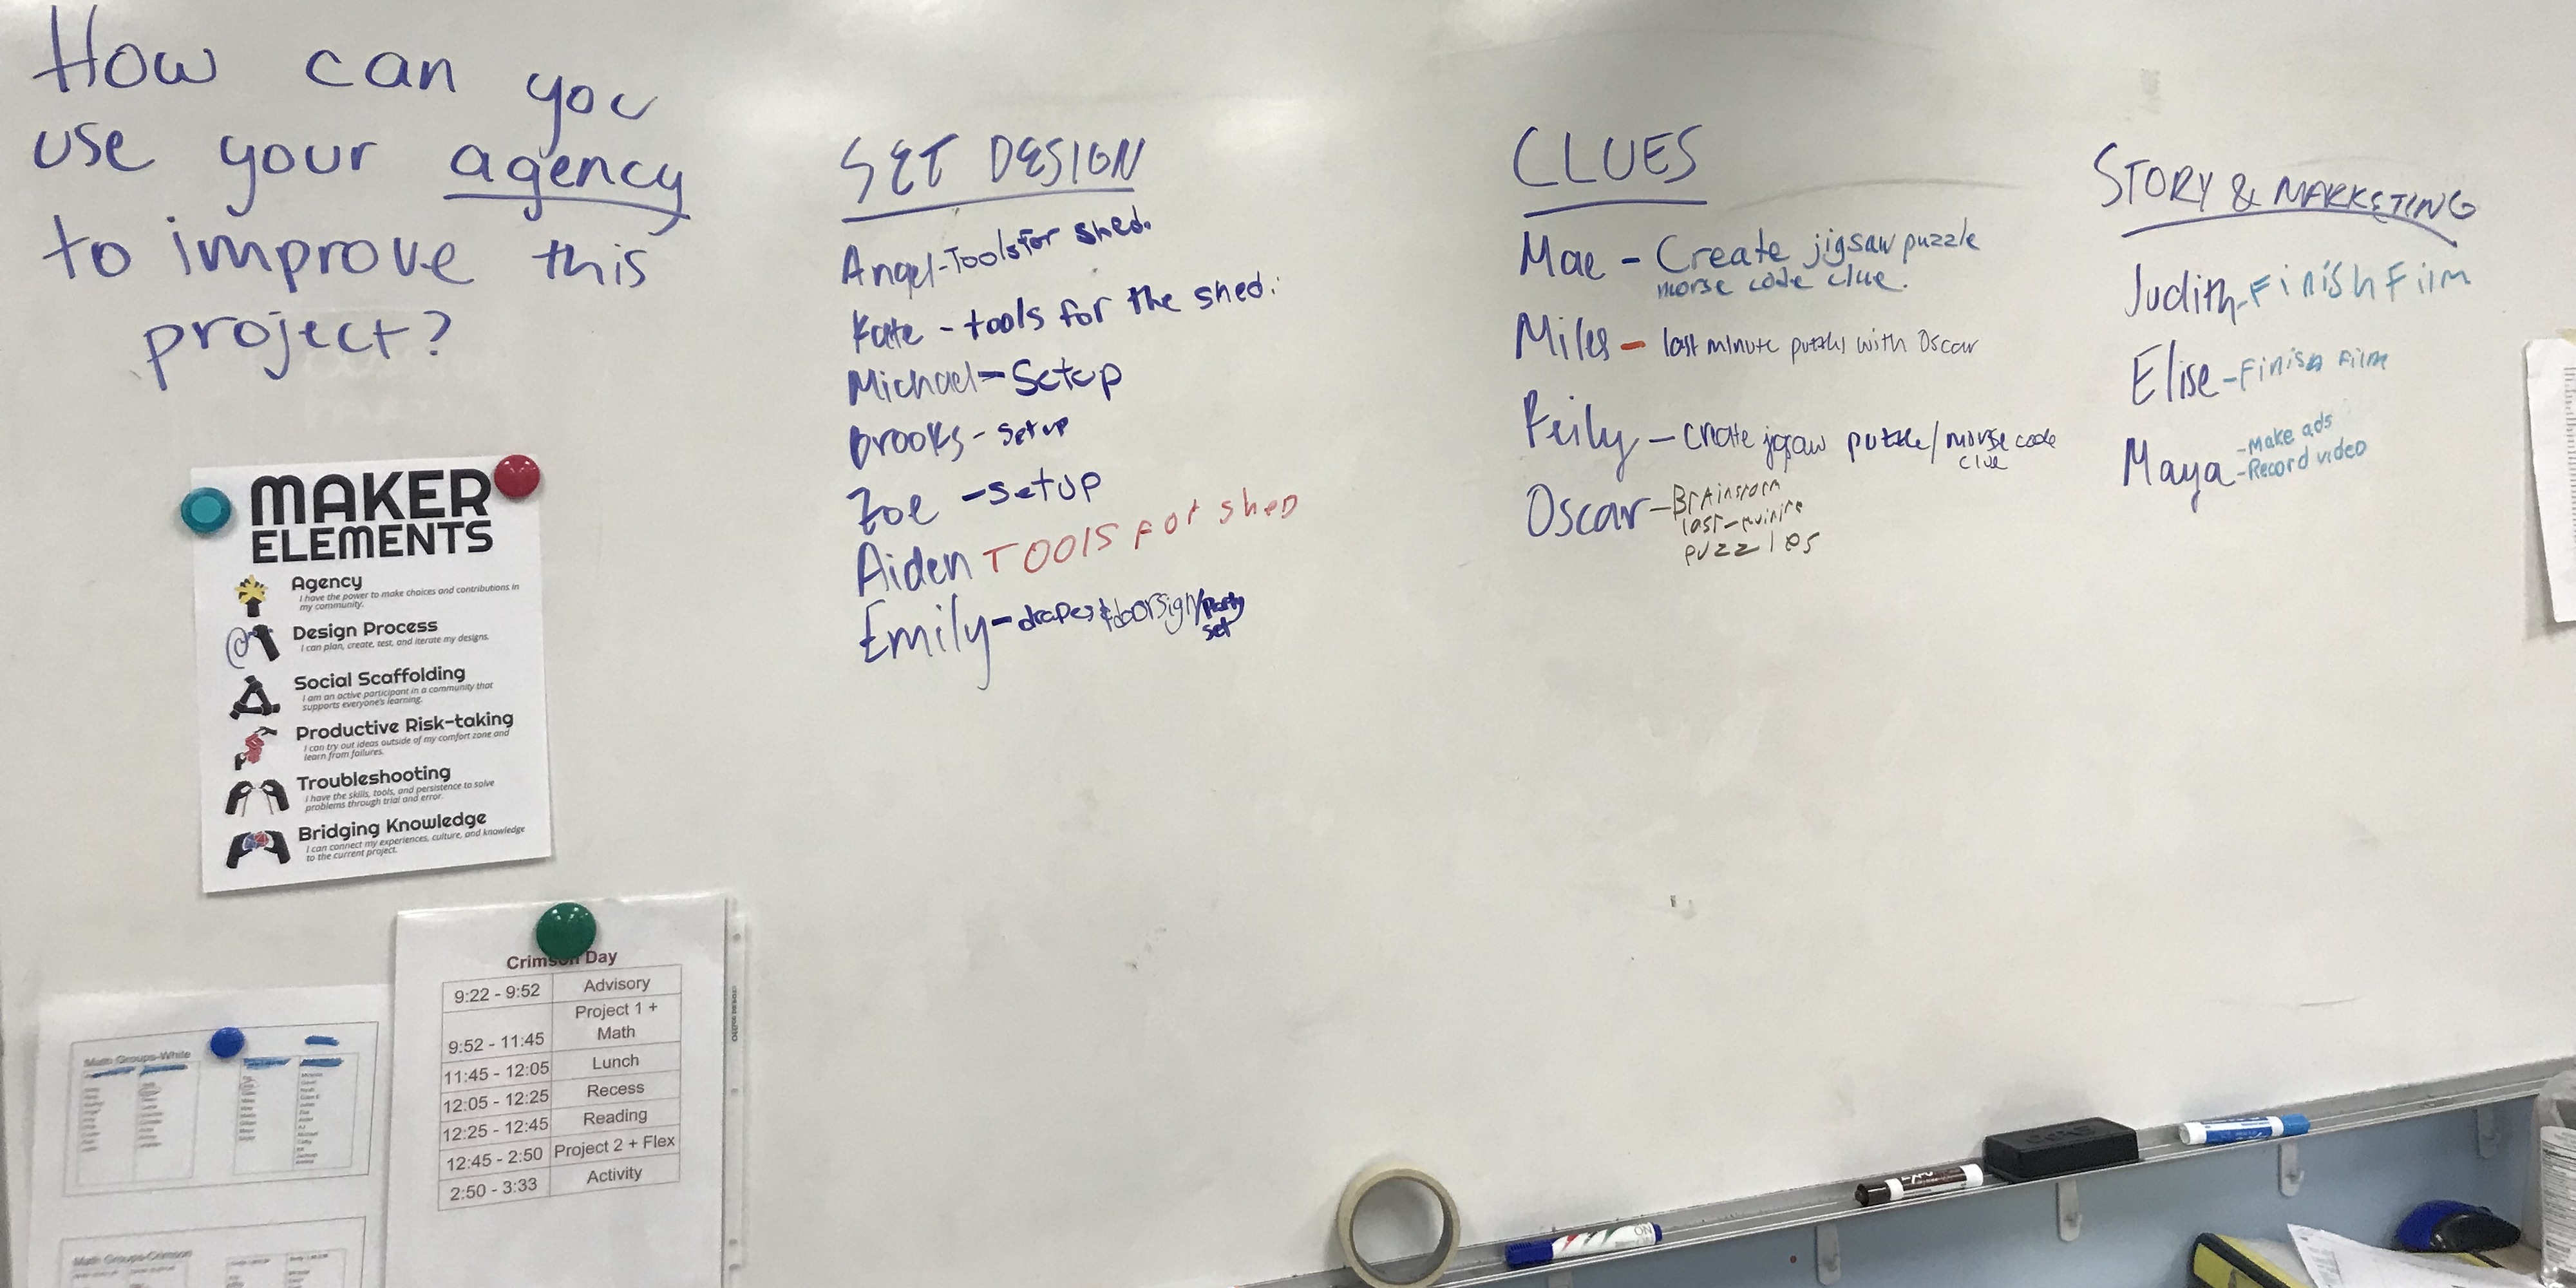 How can you
use your agency
to improve this
project?
SET DESIGN
Angel-Tools for shed.
Kate - tools for the shed.
Michael-Setup
Brooks- setup
Zoe -setup
Aiden TOOIS FOr shED
Emily-drapes & doorsign/party
set
CLUES
Mae - Create jigsaw puzzle
morse code clue.
Miles - last minute puzzles with Oscar
- create jigsaw puzzle/morse code
clue
Oscar-Brainstorm
last-minute
puzzles
STORY & MARKETING
Judith-Finish Film
Elise-Finish Film
Maya -Make ads
-Record video
MAKER
ELEMENTS
Agency
I have the power to make choices and contributions in
my community.
Design Process
I can plan, create, test, and iterate my designs.
Social Scaffolding
I am an active participant in a community that
supports everyone's learning.
Productive Risk-taking
I can try out ideas outside of my comfort zone and
learn from failures.
Troubleshooting
I have the skills, tools, and persistence to solve
problems through trial and error.
Bridging Knowledge
I can connect my experiences, culture, and knowledge
to the current project.
Crimson Day
9:22 - 9:52 Advisory
9:52 - 11:45 Project 1 +
Math
11:45 - 12:05 Lunch
12:05 - 12:25 Recess
12:25 - 12:45 Reading
12:45 - 2:50 Project 2 + Flex
2:50 - 3:33 Activity
Math Groups-White
Math Groups-Crimson